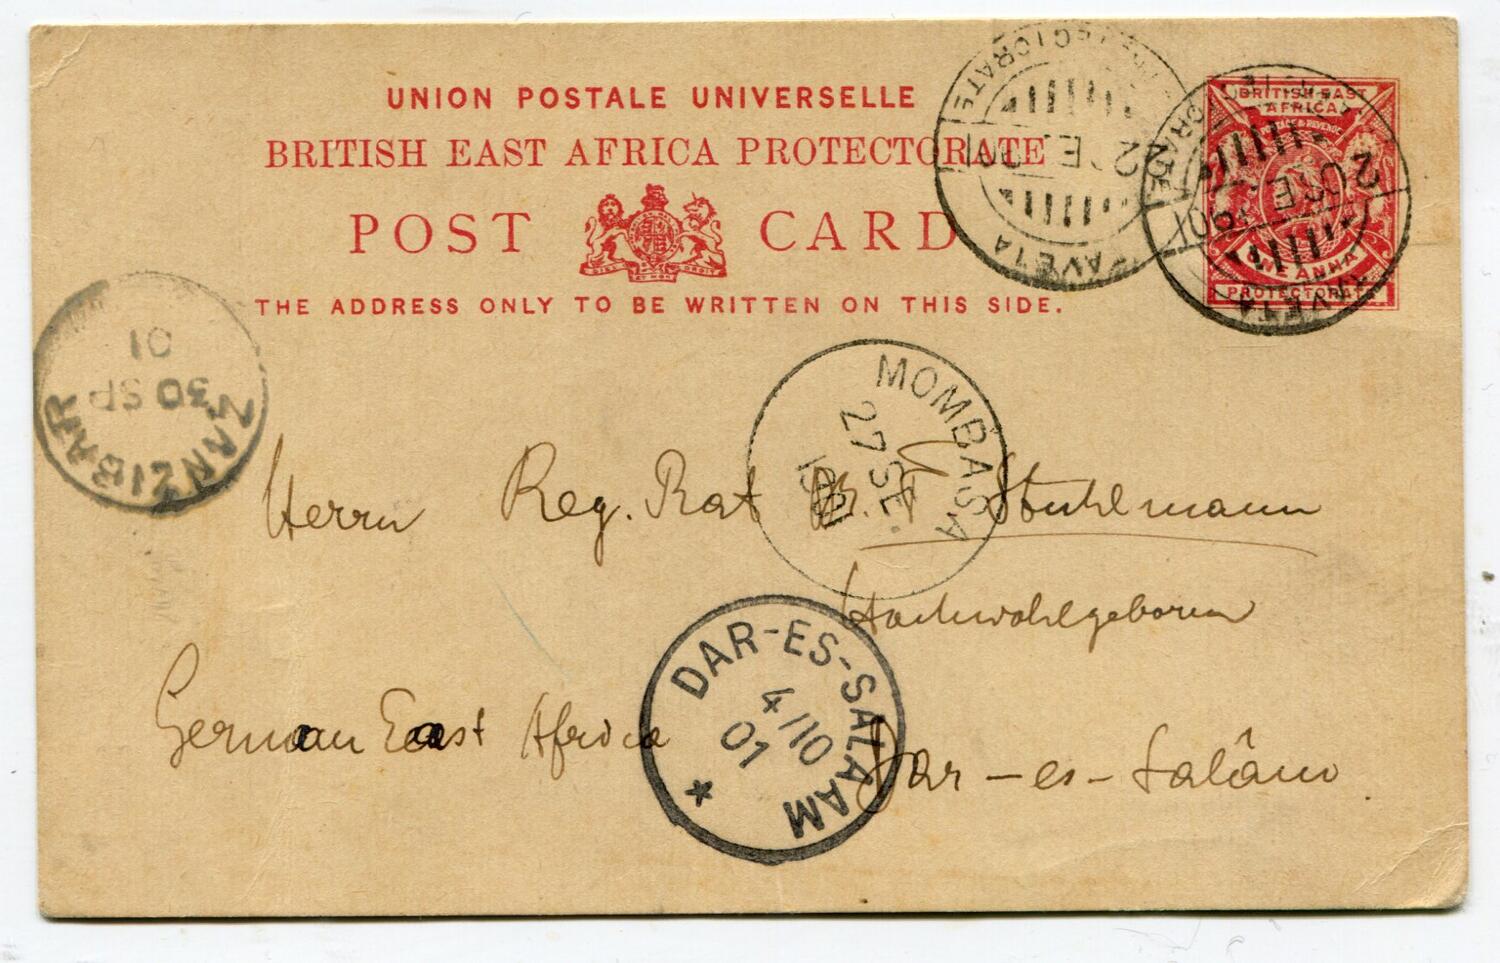 UNION POSTALE UNIVERSELLE
BRITISH EAST AFRICA PROTECTORATE
POST CARD
THE ADDRESS ONLY TO BE WRITTEN ON THIS SIDE.
BRITISH EAST
AFRICA
POSTAGE & REVENUE
ONE ANNA
PROTECTORATE
PROTECTORATE
TAVETA
TAVETA
ZANZIBAR
30 SP
01
MOMBASA
27 SE
1901
Herrn Reg. Rat Dr. F Stuhlmann
Hochwohlgeboren
DAR-ES-SALAAM
4/10
01
German East Africa
Dar-es-Salâm.